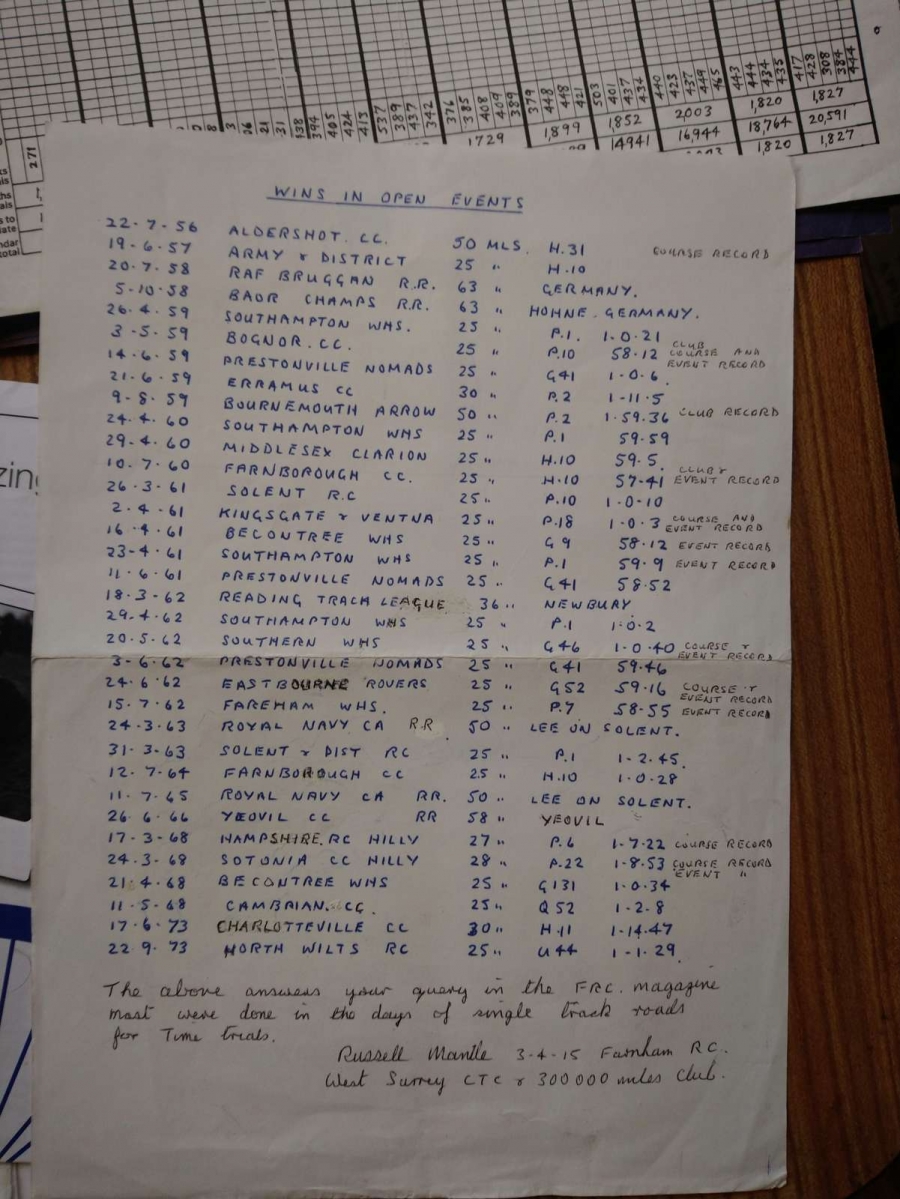 138 394 405 424 413 537 389 437 342 376 385 408 409 389 379 448 448 421 503 401 437 434 440 423 437 449 465 443 444 434 435 417 428 308 384 444
271
1729 1,899 1,852 2,003 1,820 1,827
14941 16,944 18,764 20,591
1,820 1,827
WINS IN OPEN EVENTS
22-7-56 ALDERSHOT. CC. 50 MLS. H.31 COURSE RECORD
19-6-57 ARMY & DISTRICT 25 " H.10
20-7-58 RAF BRUGGAN R.R. 63 " GERMANY.
5-10-58 BAOR CHAMPS R.R. 63 " HOHNE. GERMANY.
26-4-59 SOUTHAMPTON WHS. 25 " P.1. 1-0-21
3-5-59 BOGNOR. CC. 25 " P.10 58-12 CLUB COURSE AND EVENT RECORD
14-6-59 PRESTONVILLE NOMADS 25 " G41 1-0-6
21-6-59 ERRAMUS CC 30 " P.2 1-11-5
9-8-59 BOURNEMOUTH ARROW 50 " P.2 1-59-36 CLUB RECORD
24-4-60 SOUTHAMPTON WHS 25 " P.1 59-59
29-4-60 MIDDLESEX CLARION 25 " H.10 59-5.
10-7-60 FARNBOROUGH CC. 25 " H.10 57-41 CLUB & EVENT RECORD
26-3-61 SOLENT R.C 25 " P.10 1-0-10
2-4-61 KINGSGATE & VENTNA 25 " P.18 1-0-3 COURSE AND EVENT RECORD
16-4-61 BECONTREE WHS 25 " G9 58-12 EVENT RECORD
23-4-61 SOUTHAMPTON WHS 25 " P.1 59-9 EVENT RECORD
11-6-61 PRESTONVILLE NOMADS 25 " G41 58-52
18-3-62 READING TRACK LEAGUE 36 " NEWBURY
29-4-62 SOUTHAMPTON WHS 25 " P.1 1-0-2
20-5-62 SOUTHERN WHS 25 " G46 1-0-40 COURSE & EVENT RECORD
3-6-62 PRESTONVILLE NOMADS 25 " G41 59-46
24-6-62 EASTBOURNE ROVERS 25 " G52 59-16 COURSE & EVENT RECORD
15-7-62 FAREHAM WHS. 25 " P.7 58-55 EVENT RECORD
24-3-63 ROYAL NAVY CA R.R 50 " LEE ON SOLENT.
31-3-63 SOLENT & DIST RC 25 " P.1 1-2-45.
12-7-64 FARNBOROUGH CC 25 " H.10 1-0-28
11-7-65 ROYAL NAVY CA RR. 50 " LEE ON SOLENT.
26-6-66 YEOVIL CC RR 58 " YEOVIL
17-3-68 HAMPSHIRE.RC HILLY 27 " P.6 1-7-22 COURSE RECORD
24-3-68 SOTONIA CC HILLY 28 " P.22 1-8-53 COURSE RECORD EVENT "
21-4-68 BECONTREE WHS 25 " G131 1-0-34
11-5-68 CAMBRIAN. CC. 25 " Q52 1-2-8
17-6-73 CHARLOTTEVILLE CC 30 " H.11 1-14-47
22-9-73 NORTH WILTS RC 25 " U44 1-1-29.
The above answers your query in the FRC. magazine
most were done in the days of single track roads
for Time trials.
Russell Mantle 3-4-15 Farnham RC.
West Surrey CTC & 300 000 miles Club.